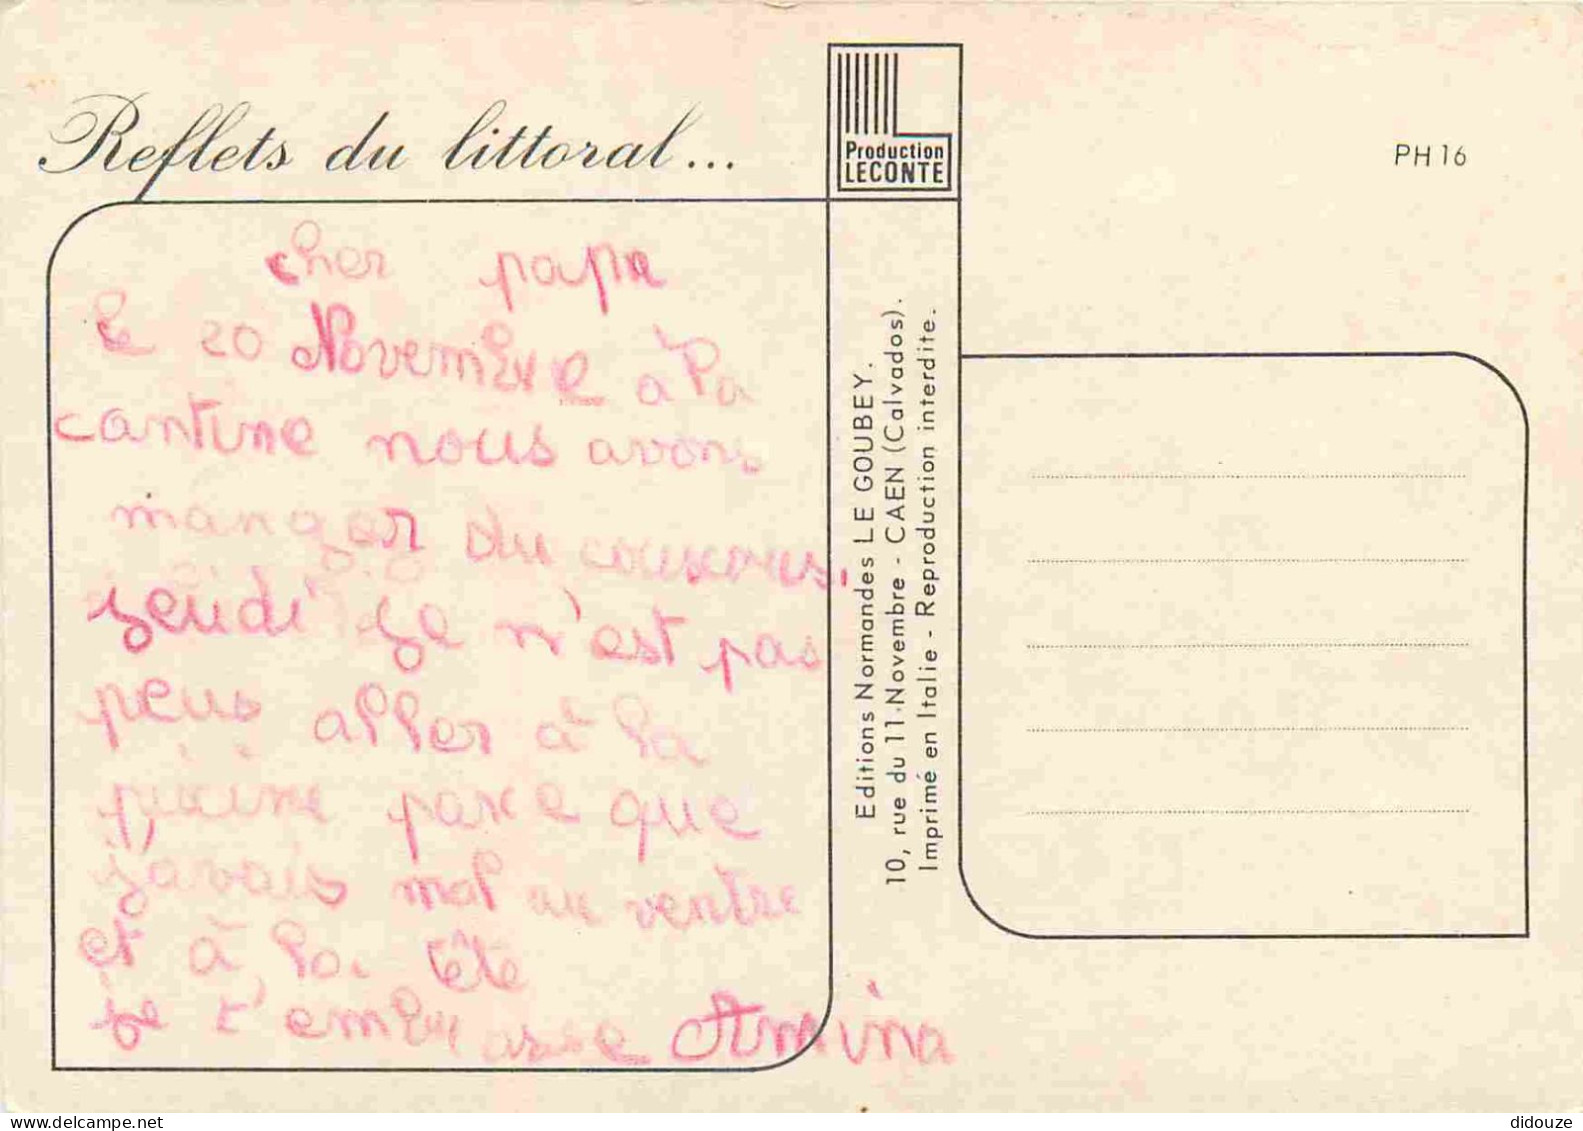 Reflets du littoral...
Production
LECONTE
PH 16
cher papa
le 20 Novembre à la
cantine nous avons
manger du couscous.
jeudi je n'est pas
peus aller à la
piscine parce que
j'avais mal au ventre
et à la tête
je t'embrasse Amina
Editions Normandes LE GOUBEY.
10, rue du 11-Novembre - CAEN (Calvados).
Imprimé en Italie - Reproduction interdite.
didouze